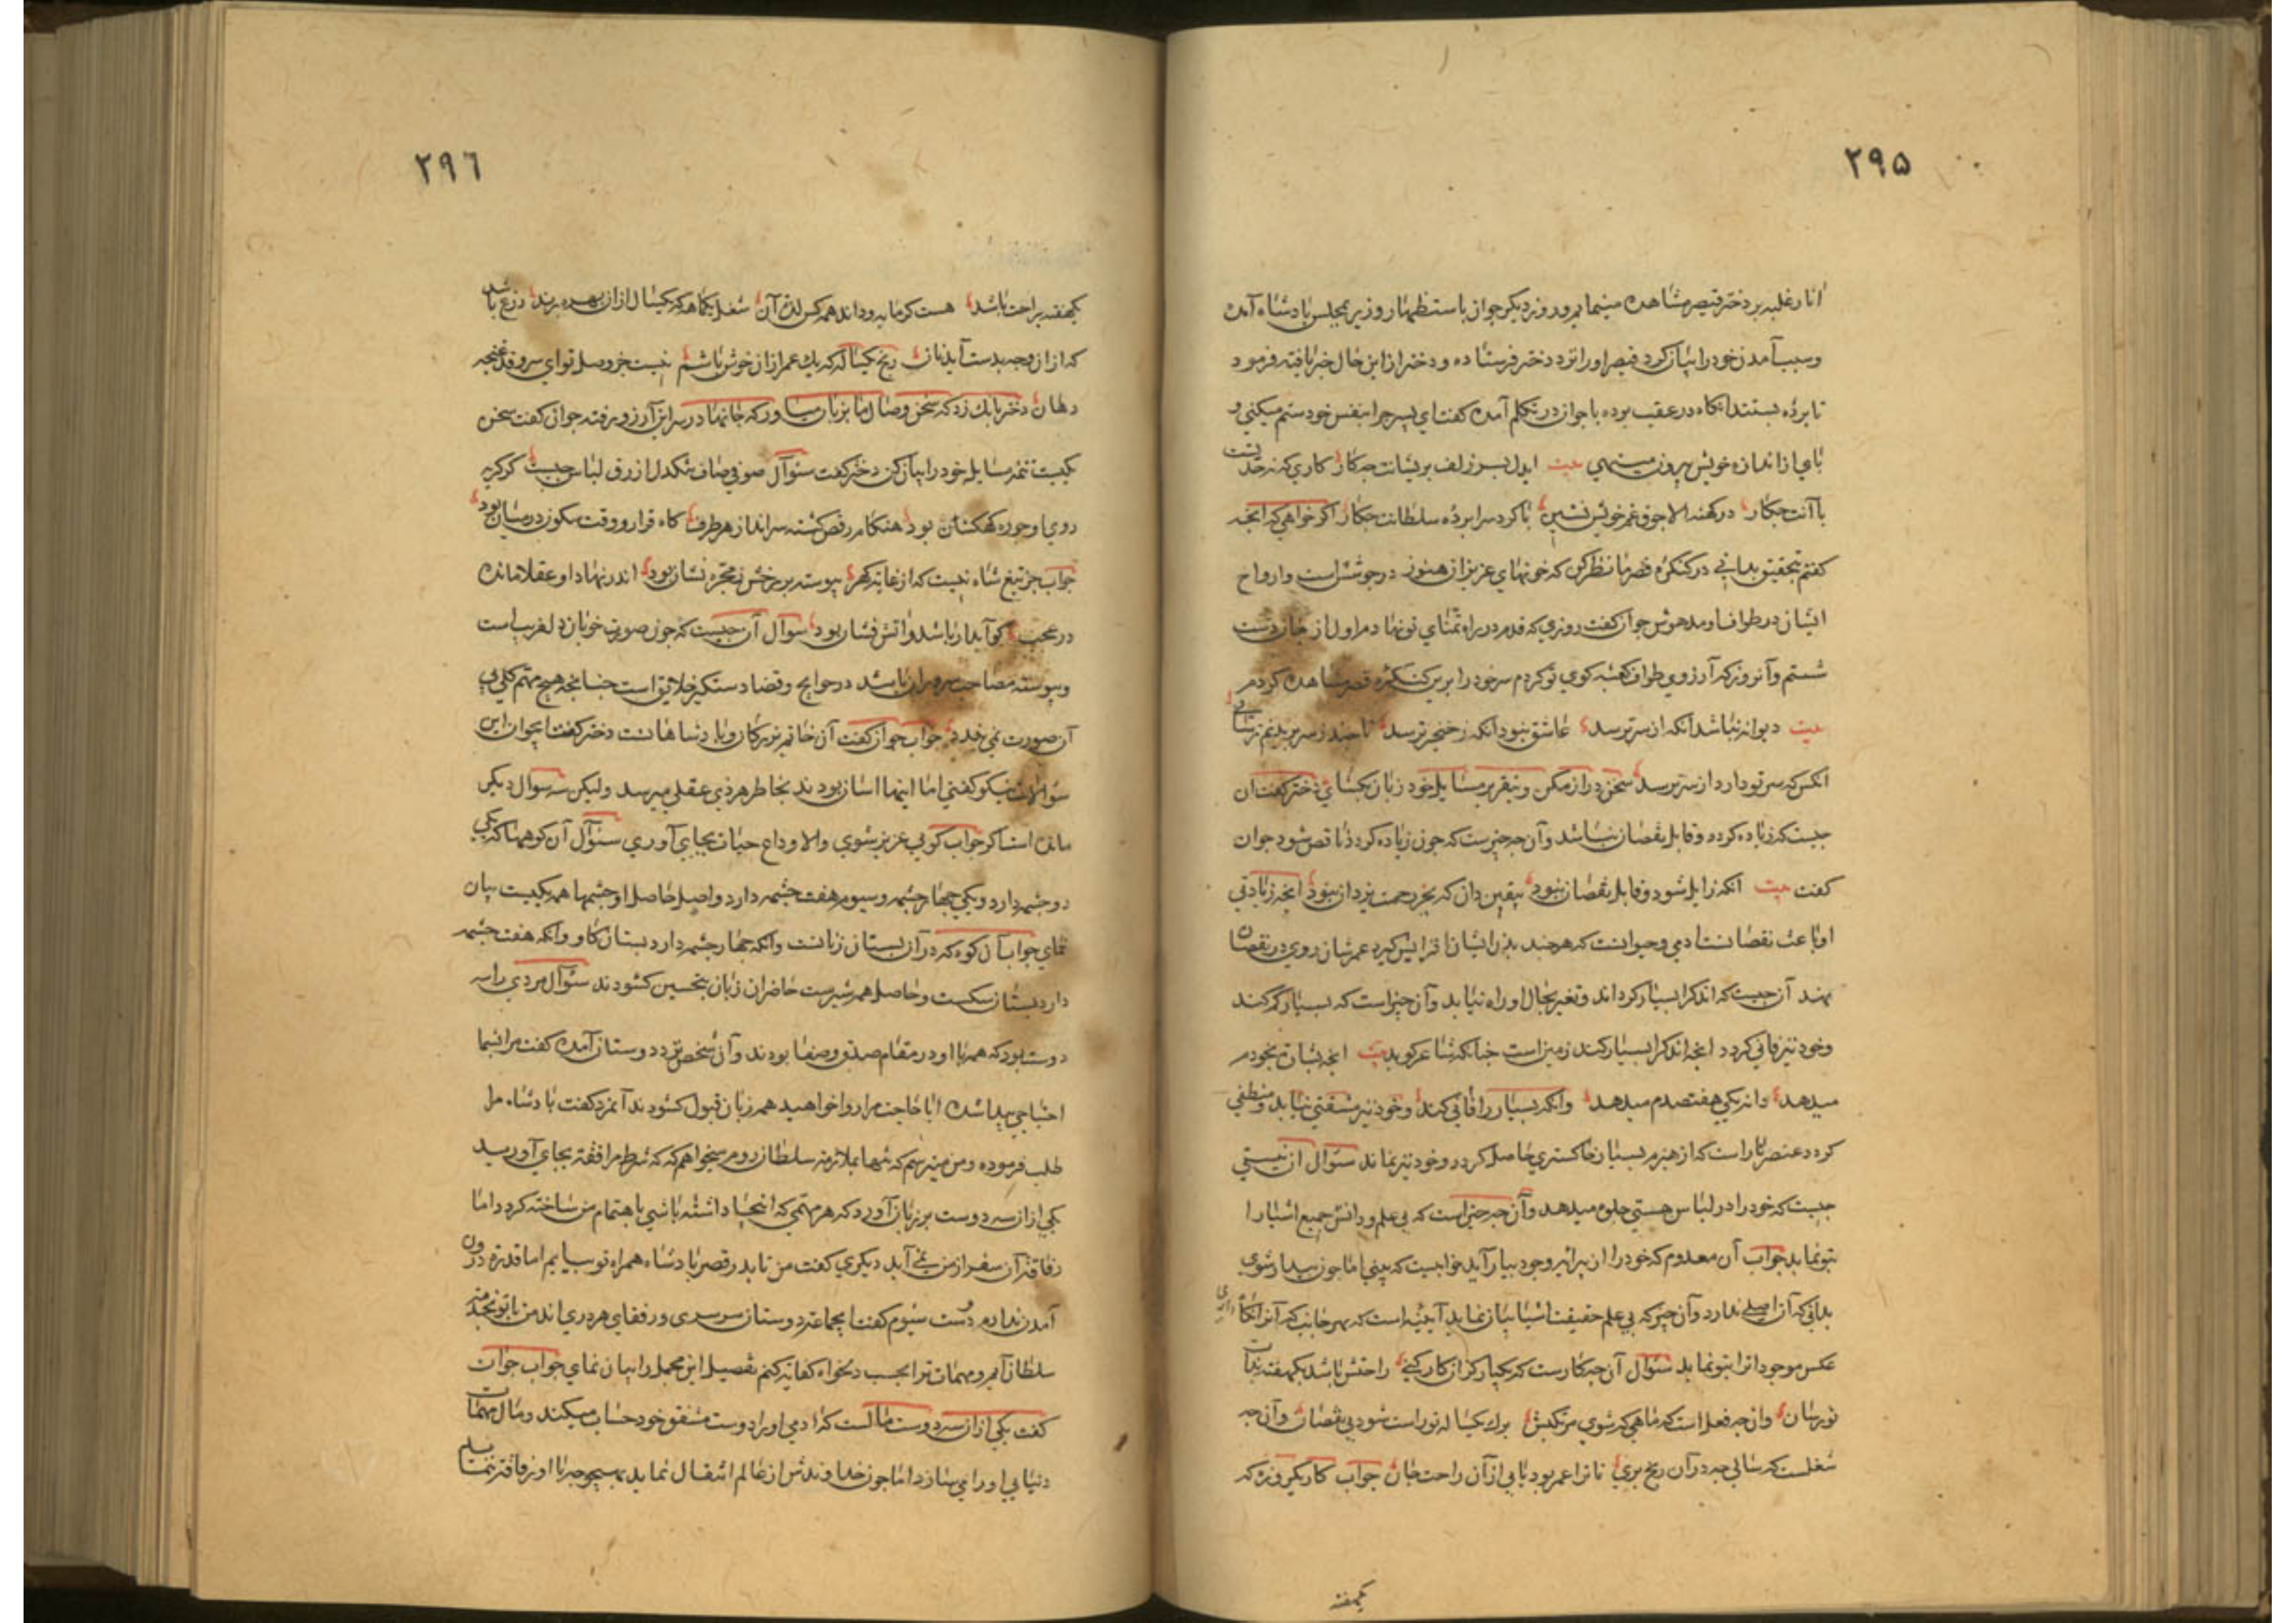 ۲۹۵
انار غلبه بر دختر قیصر مشاهده مینمایم و روز دیکر جوان باستظهار وزیر بمجلس پادشاه آمده
و سبب آمدن خود را بیان کرد قیصر او را نزد دختر فرستاده و دختر از این حال خبر یافته فرمود
تا پرده بستند انکاه در عقب بوده با جوان در تکلم آمده کفت ای پسر چرا بنفس خود ستم میکنی و
پای از اندازه خویش بیرون مینهی بیت ایدل بسر زلف بریشانت چکار کاری که نه حد تست
با آنت چکار در کهنه غم خویش نشین با کرد سرا برده سلطانت چکار اکر خواهی که آنچه
کفتم تحقیق بدانی در کنکره قصر ما نظر کن که خونهای عزیزان هنوز در جوش است و ارواح
ایشان در طواف و مدهوش جوان کفت روزی که قدم در راه تمنای تو نهادم اول از جان دست
شستم و آنروز که آرزوی طواف کعبه کوی تو کردم سر خود را برین کنکره قصر مشاهده کردم
بیت دیوانه نباشد آنکه از سر ترسد عاشق نبود آنکه ز خنجر ترسد تا چند ز سر بریدنم ترسانی
انکس که سر تو دارد از سر ترسد سخن دراز مکن و بتقریر مسایل خود زبان بکشای دختر کفت ان
چیست که زیاده کردد و قابل نقصان نباشد و آن چه چیزست که چون زیاده کردد ناقص شود جوان
کفت بیت انکه زایل شود و قابل نقصان نبود بیقین دان که بجز رحمت یزدان نبود انچه زیادتی
او باعث نقصانست ادمی و حیوانست که هر چند بدن ایشان افزایش کیرد عمرشان روی در نقصان
نهد آن چیست که اندک را بسیار کرداند و تغیر بحال او راه نیابد و آن چیز است که بسیار کم کند
و خود نیز فانی کردد انچه اندک را بسیار کند زمین است چنانکه شاعر کوید بیت
میدهد وانکه بسیار را فانی کند و خود نیز مشقتی نیابد و منطفی
کردد عنصر نار است که از هیزم بسیار خاکستری حاصل کردد و خود نیز نماند سئوال از نیستی
چیست که خود را در لباس هستی جلوه میدهد و آن چه چیز است که بی علم و دانش جمیع اشیا را
بتو نماید جواب آن معدوم که خود را از بیرایه وجود بیاراید خوابیست که بینی اما چون بیدار شوی
بدانی که آن اصلی ندارد و آن چیز که بی علم حقیقت اشیا بیان نماید آیینه است که بهر جانب که آنرا نکاه داری
عکس موجودات را بتو نماید سئوال آن چه کارست که یکبار کر آن کار کنی راحتش باشد یکهفته بذات
تو رسان وان چه فعل است که ماهی که شوی مرتکبش برک یکساله تو راست شود بی نقصان و آن چه
شغلست که سالی چه در آن رنج بری تا ترا عمر بود یابی از آن راحت جان جواب کار یکروزه که
یکهفته
۲۹۶
یکهفته براحت باشد هست کرمابه و داند همه کس لذت آن شغل یکماهه که یکسال از ان بهره برند زرع باشد
که از ان وجه بدست آید نان رنج یکساله که یک عمر از ان خوش باشم نیست جز وصل تو ای سرو قد غنچه
دهان دختر بانک زد که سخن وصال ما بزبان میاور که جانها در سر این آرزو رفته جوان کفت سخن
یکیست تتمه مسایل خود را بیان کن دختر کفت سئوال صوفی صاف تنکدل ازرق لباس چیست کز کریه
روی او چو ره کهکشان بود هنکام رقص کشته سرانداز هر طرف کاه قرار و وقت سکون در میان بود
جواب جز تیغ شاه نیست که از غایت کهر پیوسته بر رخش ز مجره نشان بود اندر نهاد او عقلا مانده
در عجب کو آبدار باشد و آتش فشان بود سئوال آن چیست که چون صورت خوبان دلفریب است
و پیوسته مصاحب سروران باشد در حوایج و قضا دستکیر خلایق است چنانچه هیچ مهم کلی بی
آن صورت نمی بندد جواب جوان کفت آن خاتم بزرکان و پادشاهانست دختر کفت ایجوان این
سئوالات نیکو کفتی اما اینها اسان بودند بخاطر هر ذی عقلی میرسد ولیکن سه سوال دیکر
مانده است اکر جواب کویی عزیز شوی والا وداع حیات بجای آوری سئوال آن کوهها که یکی
دو چشمه دارد و یکی چهار چشمه و سیوم هفت چشمه دارد و اصل حاصل او چشمها همه یکیست بیان
نمای جواب آن کوه که در آن بستان زنانست وانکه چهار چشمه دارد بستان کاو وانکه هفت چشمه
دارد بستان سکست و حاصل همه شیرست حاضران زبان بتحسین کشودند سئوال مردی را سه
دوست بود که همه با او در مقام صدق و صفا بودند و آن شخص نزد دوستان آمده کفت مرا بشما
احتیاجی پیدا شده ایا حاجت مرا روا خواهید همه زبان قبول کشودند آنمرد کفت پادشاه مرا
طلب فرموده و من میترسم که تنها بملازمت سلطان روم میخواهم که شرط مرافقة بجای آورید
یکی از ان سه دوست بر زبان آورد که هر مهمی که اینجا داشته باشی باهتمام من ساخته کردد اما
رفاقت آن سفر از من نمی آید دیکری کفت من تا بدر قصر پادشاه همراه تو بیایم اما قدرت درون
آمدن ندارم دوست سیوم کفت ایجماعت دوستان سرسری و رفقای هر دری اند من با تو بخدمت
سلطان آیم و مهمات ترا بحسب دلخواه کفایت کنم تفصیل این مجمل را بیان نمای جواب جوان
کفت یکی از ان سه دوست مالست که ادمی او را دوست مشفق خود حساب میکند و مال مهمات
دنیایی او را می سازد اما چون خداوندش از عالم انتقال نماید بهیچوجه با او رفاقت ننماید